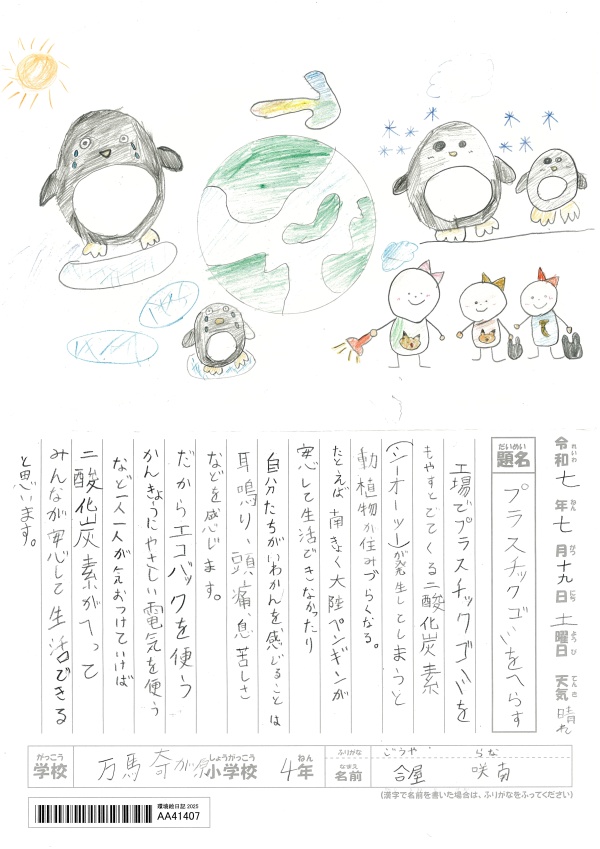 令和七年七月十九日土曜日 天気 晴れ
題名 プラスチックゴミをへらす
工場でプラスチックゴミを
もやすとでてくる二酸化炭素
(シーオーツー)が発生してしまうと
動植物が住みづらくなる。
たとえば南きょく大陸ペンギンが
安心して生活できなかったり
自分たちがいわかんを感じることは
耳鳴り、頭痛、息苦しさ
などを感じます。
だからエコバックを使う
かんきょうにやさしい電気を使う
など一人一人が気おつけていけば
二酸化炭素がへって
みんなが安心して生活できる
と思います。
学校 万馬奇が原小学校 4年
ふりがな ごうや らな
名前 合屋 咲南
(漢字で名前を書いた場合は、ふりがなをふってください)
環境絵日記 2025
AA41407